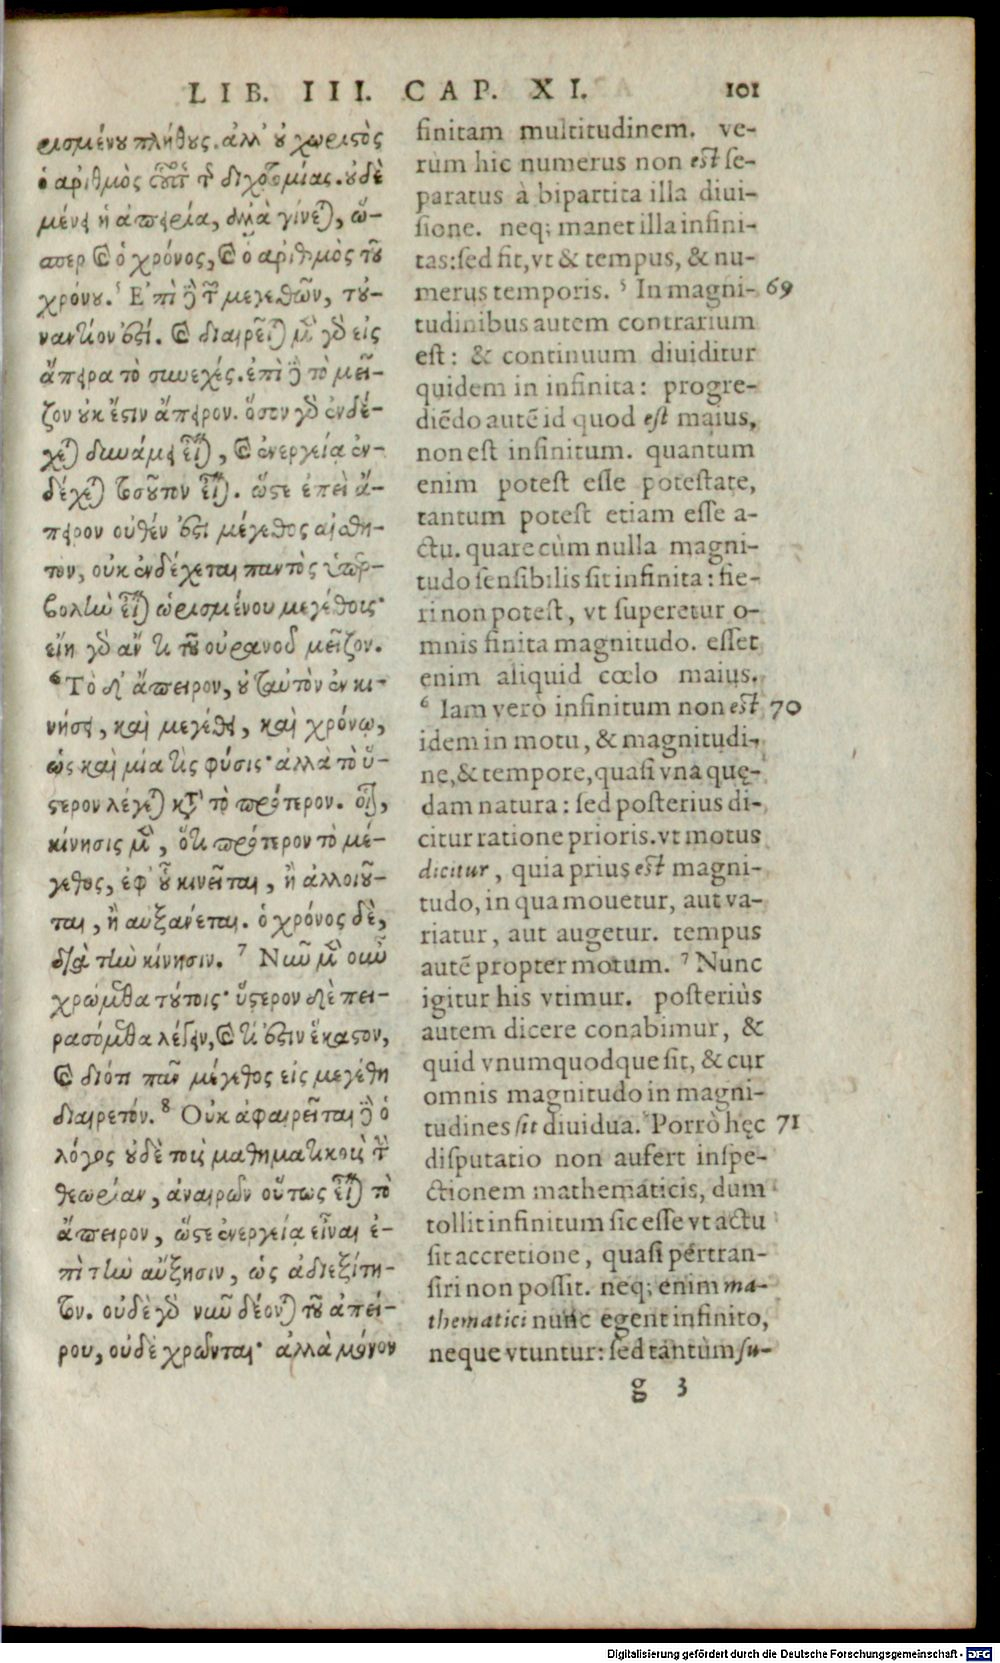 LIB. III. CAP. XI. 101
ρισμένου πλήθους. ἀλλ' οὐ χωριστὸς
ὁ ἀριθμὸς οὗτος τῆς διχοτομίας. οὐδὲ
μένει ἡ ἀπειρία, ἀλλὰ γίνεται, ὥ-
σπερ καὶ ὁ χρόνος, καὶ ὁ ἀριθμὸς τοῦ
χρόνου. ⁵ Ἐπὶ δὲ τῶν μεγεθῶν, τοὐ-
ναντίον ἐστί. καὶ διαιρεῖται μὲν γὰρ εἰς
ἄπειρα τὸ συνεχές. ἐπὶ δὲ τὸ μεῖ-
ζον οὐκ ἔστιν ἄπειρον. ὅσον γὰρ ἐνδέ-
χεται δυνάμει εἶναι, καὶ ἐνεργείᾳ ἐν-
δέχεται τοσοῦτον εἶναι. ὥστε ἐπεὶ ἄ-
πειρον οὐθέν ἐστι μέγεθος αἰσθη-
τον, οὐκ ἐνδέχεται παντὸς ὑπερ-
βολὴν εἶναι ὡρισμένου μεγέθους·
εἴη γὰρ ἄν τι τοῦ οὐρανοῦ μεῖζον.
⁶ Τὸ δ' ἄπειρον, οὐ ταὐτὸν ἐν κι-
νήσει, καὶ μεγέθει, καὶ χρόνῳ,
ὡς καὶ μία τις φύσις· ἀλλὰ τὸ ὕ-
στερον λέγεται κατὰ τὸ πρότερον. οἷον,
κίνησις μὲν, ὅτι πρότερον τὸ μέ-
γεθος, ἐφ' οὗ κινεῖται, ἢ ἀλλοιοῦ-
ται, ἢ αὐξάνεται. ὁ χρόνος δὲ,
διὰ τὴν κίνησιν. ⁷ Νῦν μὲν οὖν
χρώμεθα τούτοις· ὕστερον δὲ πει-
ρασόμεθα λέγειν, καὶ τί ἐστιν ἕκαστον,
καὶ διότι πᾶν μέγεθος εἰς μεγέθη
διαιρετόν. ⁸ Οὐκ ἀφαιρεῖται δὲ ὁ
λόγος οὐδὲ τοὺς μαθηματικοὺς τὴν
θεωρίαν, ἀναιρῶν οὕτως εἶναι τὸ
ἄπειρον, ὥστε ἐνεργείᾳ εἶναι ἐ-
πὶ τὴν αὔξησιν, ὡς ἀδιεξίτη-
τον. οὐδὲ γὰρ νῦν δέονται τοῦ ἀπεί-
ρου, οὐδὲ χρῶνται· ἀλλὰ μόνον
finitam multitudinem. ve-
rùm hic numerus non est se-
paratus à bipartita illa diui-
sione. neq; manet illa infini-
tas: sed fit, vt & tempus, & nu-
merus temporis. ⁵ In magni- 69
tudinibus autem contrarium
est: & continuum diuiditur
quidem in infinita: progre-
diẽdo autẽ id quod est maius,
non est infinitum. quantum
enim potest esse potestate,
tantum potest etiam esse a-
ctu. quare cùm nulla magni-
tudo sensibilis sit infinita: fie-
ri non potest, vt superetur o-
mnis finita magnitudo. esset
enim aliquid cœlo maius.
⁶ Iam verò infinitum non est 70
idem in motu, & magnitudi-
ne, & tempore, quasi vna quę-
dam natura: sed posterius di-
citur ratione prioris. vt motus
dicitur, quia prius est magni-
tudo, in qua mouetur, aut va-
riatur, aut augetur. tempus
autẽ propter motum. ⁷ Nunc
igitur his vtimur. posteriùs
autem dicere conabimur, &
quid vnumquodque sit, & cur
omnis magnitudo in magni-
tudines sit diuidua. ⁸ Porrò hęc 71
disputatio non aufert inspe-
ctionem mathematicis, dum
tollit infinitum sic esse vt actu
sit accretione, quasi pertran-
siri non possit. neq; enim ma-
thematici nunc egent infinito,
neque vtuntur: sed tantùm su-
g 3
Digitalisierung gefördert durch die Deutsche Forschungsgemeinschaft - DFG